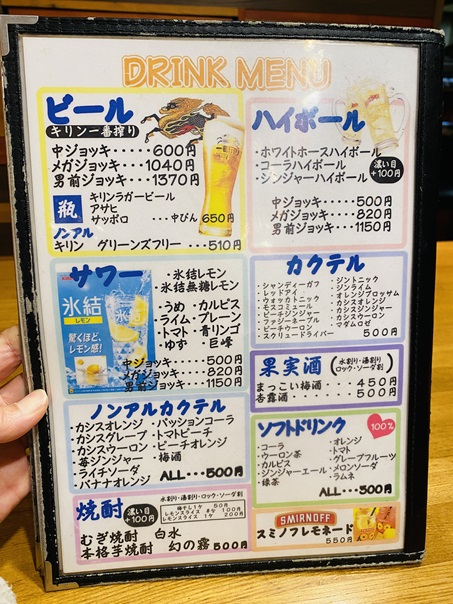 DRINK MENU
ビール
キリン一番搾り
中ジョッキ・・・・600円
メガジョッキ・・・1040円
男前ジョッキ・・・1370円
瓶
キリンラガービール
アサヒ
サッポロ ・・・中びん 650円
ノンアル
キリン グリーンズフリー・・・・510円
ハイボール
・ホワイトホースハイボール
・コーラハイボール
・ジンジャーハイボール
濃い目
+100円
中ジョッキ・・・・・500円
メガジョッキ・・・・820円
男前ジョッキ・・・1150円
サワー
氷結
レモン
驚くほど、
レモン感!
・氷結レモン
・氷結無糖レモン
・うめ ・カルピス
・ライム ・プレーン
・トマト ・青リンゴ
・ゆず ・巨峰
中ジョッキ・・・・・500円
メガジョッキ・・・・820円
男前ジョッキ・・・1150円
カクテル
・シャンディーガフ
・レッドアイ
・ウォッカトニック
・モスコミュール
・ピーチジンジャー
・ファジーネーブル
・ピーチウーロン
・スクリュードライバー
・ジントニック
・ジンライム
・オレンジブロッサム
・カシスオレンジ
・カシスジンジャー
・カシスウーロン
・マダムロゼ
500円
果実酒
(水割り・湯割り
ロック・ソーダ割)
まっこい梅酒・・・・450円
杏露酒・・・・・・・500円
ノンアルカクテル
・カシスオレンジ ・パッションコーラ
・カシスグレープ ・トマトピーチ
・カシスウーロン ・ピーチオレンジ
・苺ジンジャー ・梅酒
・ライチソーダ
・バナナオレンジ ALL・・・500円
ソフトドリンク
100%
・コーラ
・ウーロン茶
・カルピス
・ジンジャーエール
・緑茶
・オレンジ
・トマト
・グレープフルーツ
・メロンソーダ
・ラムネ
ALL・・・300円
焼酎
濃い目
+100円
水割り・湯割り・ロック・ソーダ割
梅干し1ケ 50円
レモンスライス 半ケ 100円
レモンスライス 1ケ 200円
むぎ焼酎 白水
本格芋焼酎 幻の霧 500円
SMIRNOFF
スミノフレモネード
550円